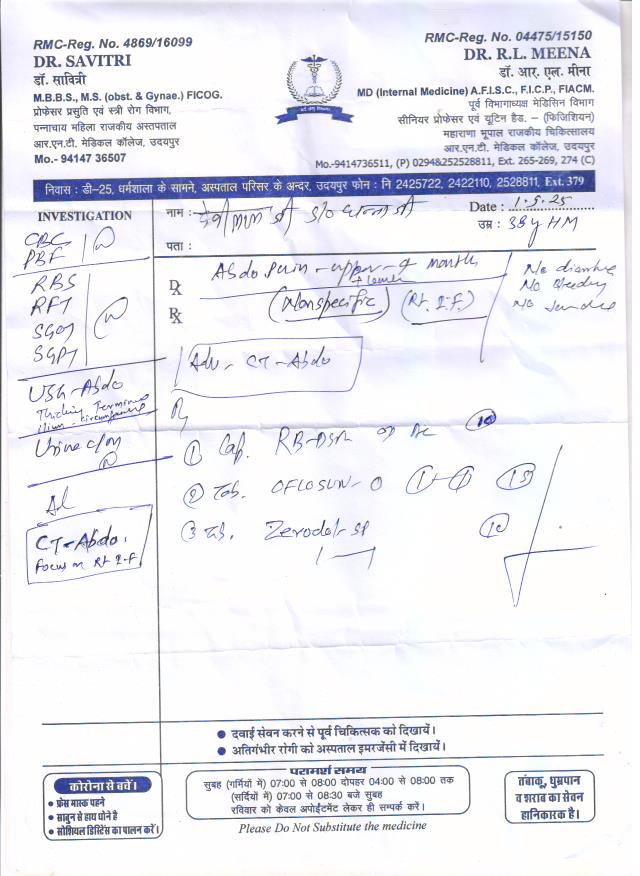 RMC-Reg. No. 4869/16099
DR. SAVITRI
डॉ. सावित्री
M.B.B.S., M.S. (obst. & Gynae.) FICOG.
प्रोफेसर प्रसुति एवं स्त्री रोग विभाग,
पन्नाधाय महिला राजकीय अस्तपताल
आर.एन.टी. मेडिकल कॉलेज, उदयपुर
Mo.- 94147 36507
RMC-Reg. No. 04475/15150
DR. R.L. MEENA
डॉ. आर. एल. मीना
MD (Internal Medicine) A.F.I.S.C., F.I.C.P., FIACM.
पूर्व विभागाध्यक्ष मेडिसिन विभाग
सीनियर प्रोफेसर एवं यूटिन हैड. – (फिजिशियन)
महाराणा भूपाल राजकीय चिकित्सालय
आर.एन.टी. मेडिकल कॉलेज, उदयपुर
Mo.-9414736511, (P) 0294&252528811, Ext. 265-269, 274 (C)
निवास : डी-25, धर्मशाला के सामने, अस्पताल परिसर के अन्दर, उदयपुर फोन : नि 2425722, 2422110, 2528811, Ext. 379
INVESTIGATION
CBC
PBF
RBS
RFT
SGOT
SGPT
USG-Abdo
Thicking Terminal
ilium - circumference
Urine c/m
Ad
CT-Abdo.
Focus on Rt I.F
नाम : S/o
Date : 1.5.25
उम्र : 38y HM
पता :
Abdo Pain - upper - 9 months
+ lower
(Nonspecific) (Rt. I.F.)
No diarrhea
No bleeding
No Jaundice
Adv - CT-Abdo
Rx
① Cap. RB-DSR OD AC 10
② Tab. OFLOSUN-O 1-1 15
③ Tab. Zerodol-SP 10
1—1
● दवाई सेवन करने से पूर्व चिकित्सक को दिखायें।
● अतिगंभीर रोगी को अस्पताल इमरजेंसी में दिखायें।
कोरोना से बचें।
● फ्रेस मास्क पहने
● साबुन से हाथ धोने है
● सोशियल डिस्टिेंस का पालन करें।
परामर्श समय
सुबह (गर्मियों में) 07:00 से 08:00 दोपहर 04:00 से 08:00 तक
(सर्दियों में) 07:00 से 08:30 बजे सुबह
रविवार को केवल अपोईंटमेंट लेकर ही सम्पर्क करें।
Please Do Not Substitute the medicine
तंबाकू, धुम्रपान
व शराब का सेवन
हानिकारक है।